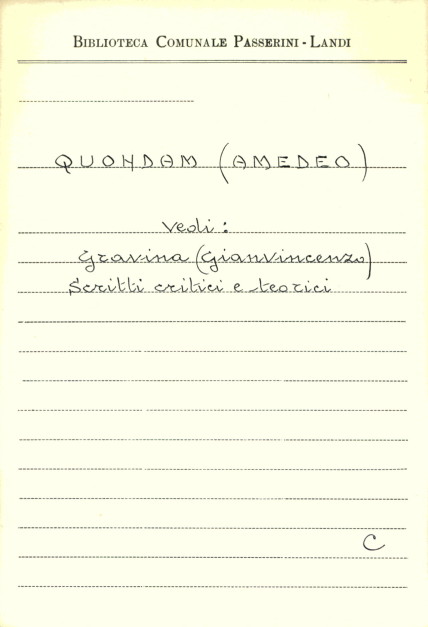 BIBLIOTECA COMUNALE PASSERINI - LANDI
QUONDAM (AMEDEO)
Vedi:
Gravina (Gianvincenzo)
Scritti critici e teorici
C